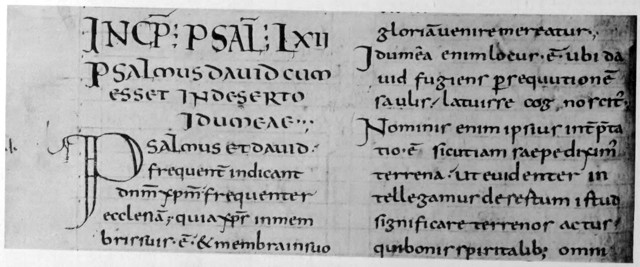 INCP̄; PSAL̄; LXII
PSALMUS DAUID CUM
ESSET IN DESERTO
IDUMEAE
PSAL̄MUS ET DAUID.
frequent̄ indicant
dnm̄ xpm̄. frequenter
ecclesiā; quia xp̄s in mem
bris suis. ē. & membra in suo
gloriā uenire mereatur;
Idumēa enim locus. ē. ubi da
uid fugiens p̱sequutionē
saulis. latuisse cognoscit̄.
Nominis enim ipsius int̄p̱ta
tio. ē. sicut iam saepe diximꝰ
terrena. ut euidenter in
tellegamus desertum istud
significare terrenos actus.
qui bonis spiritalib; omni